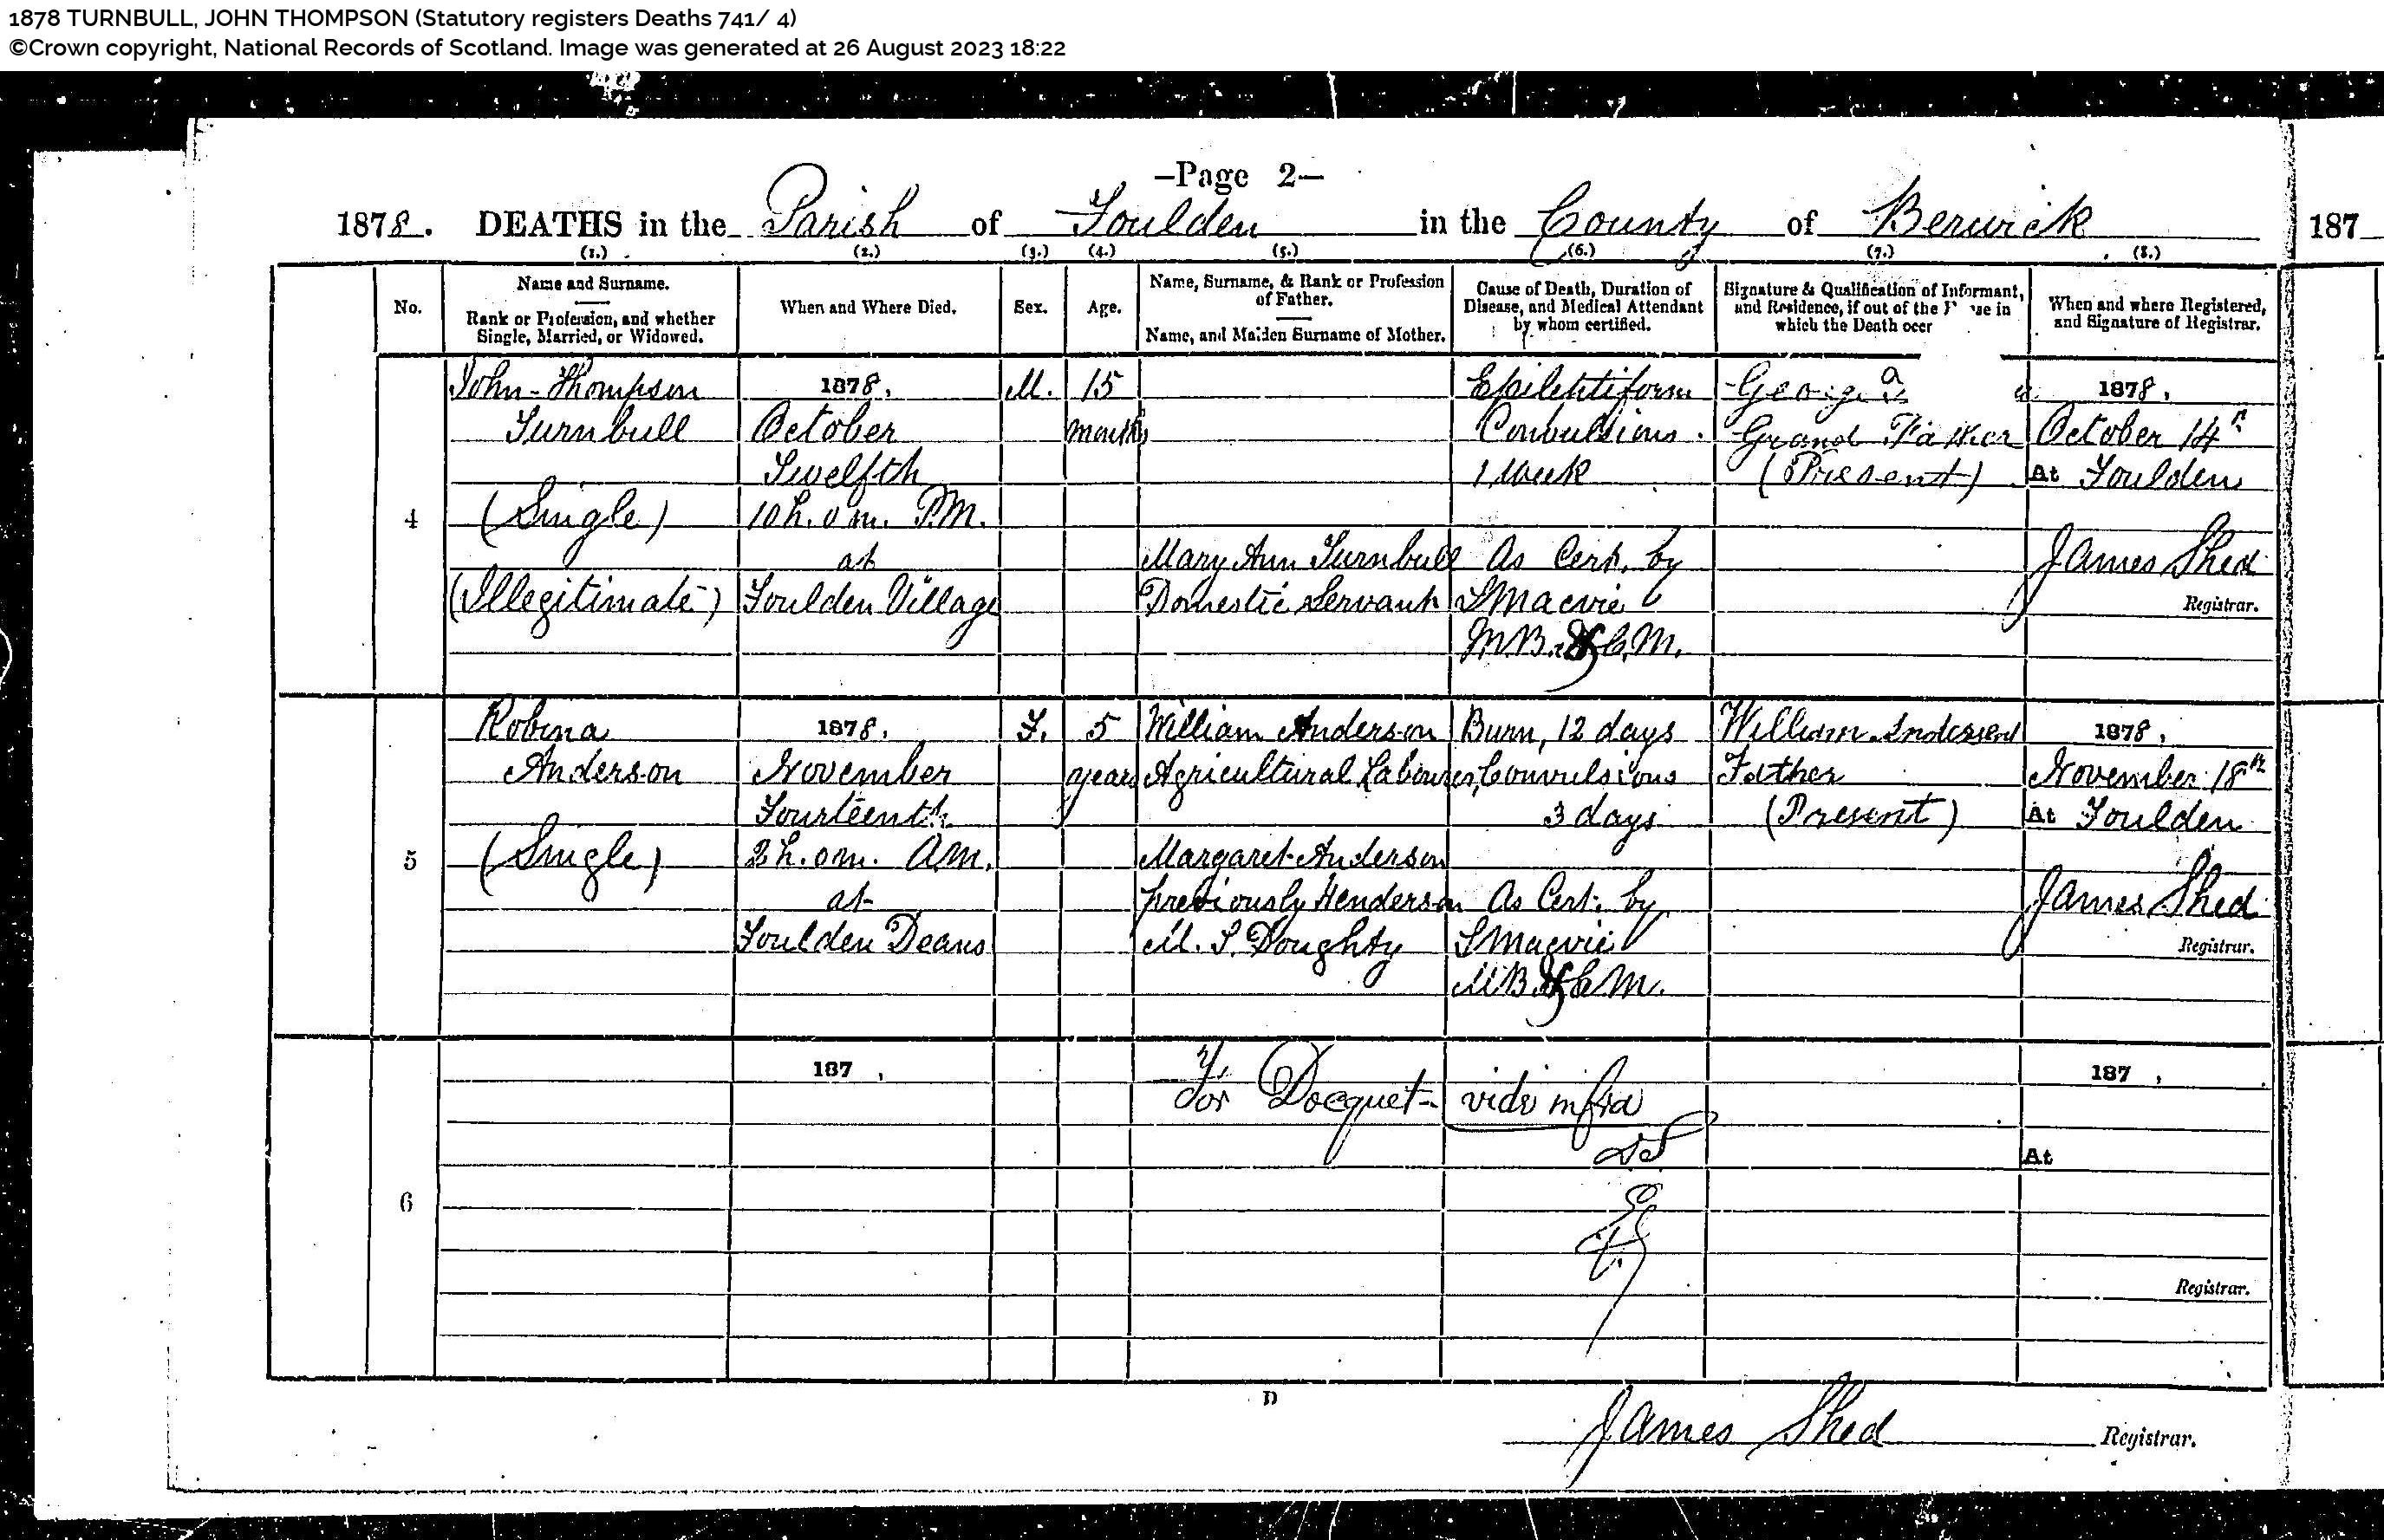 1878 TURNBULL, JOHN THOMPSON (Statutory registers Deaths 741/ 4)
©Crown copyright, National Records of Scotland. Image was generated at 26 August 2023 18:22
–Page 2–
1878. DEATHS in the Parish of Foulden in the County of Berwick
187
(1.) (2.) (3.) (4.) (5.) (6.) (7.) (8.)
No.
Name and Surname.
Rank or Profession, and whether
Single, Married, or Widowed.
When and Where Died.
Sex.
Age.
Name, Surname, & Rank or Profession
of Father.
Name, and Maiden Surname of Mother.
Cause of Death, Duration of
Disease, and Medical Attendant
by whom certified.
Signature & Qualification of Informant,
and Residence, if out of the
which the Death
When and where Registered,
and Signature of Registrar.
4
John Thompson
Turnbull
(Single)
(Illegitimate)
1878,
October
Twelfth
10 h. 0 m. P.M.
at
Foulden Village
M.
15
months
Mary Ann Turnbull
Domestic Servant
Epileptiform
Convulsions.
1 week
As Cert. by
S Macvie
M.B. & C.M.
George
Grand Father
(Present)
1878,
October 14th
At Foulden
James Shed
Registrar.
5
Robina
Anderson
(Single)
1878,
November
Fourteenth
2 h. 0 m. A.M.
at
Foulden Deans
F.
5
years
William Anderson
Agricultural Labourer,
Margaret Anderson
previously Henderson
M. S. Doughty
Burn, 12 days
Convulsions
3 days
As Cert. by
S Macvie
M B & C M.
William Anderson
Father
(Present)
1878,
November 18th
At Foulden
James Shed
Registrar.
6
187 ,
For Docquet vide infra
187 ,
At
Registrar.
D
James Shed Registrar.